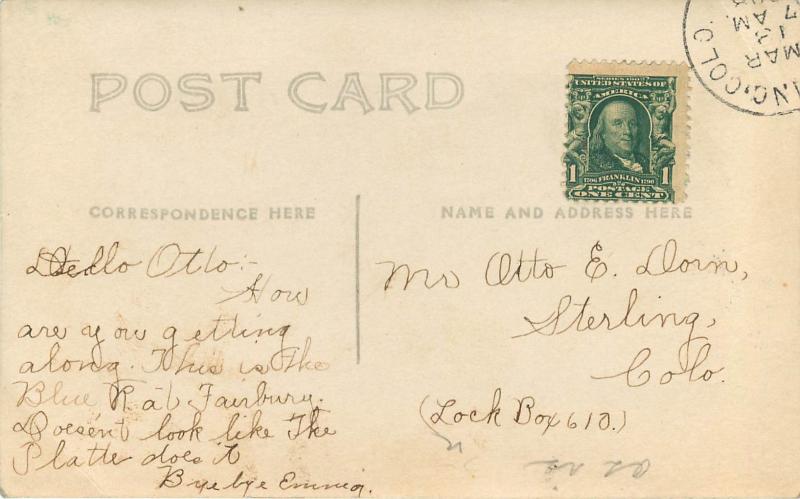 POST CARD
CORRESPONDENCE HERE
NAME AND ADDRESS HERE
SERIES 1902
UNITED STATES OF
AMERICA
1 1
1706 FRANKLIN 1790
POSTAGE
ONE CENT
ING, COLO
MAR
13
AM
7
Hello Otto:-
How
are you getting
along. This is the
Blue R at Fairbury.
Doesent look like The
Platte does it
Bye bye Emma.
Mr Otto E. Dorn,
Sterling,
Colo.
(Lock Box 610.)